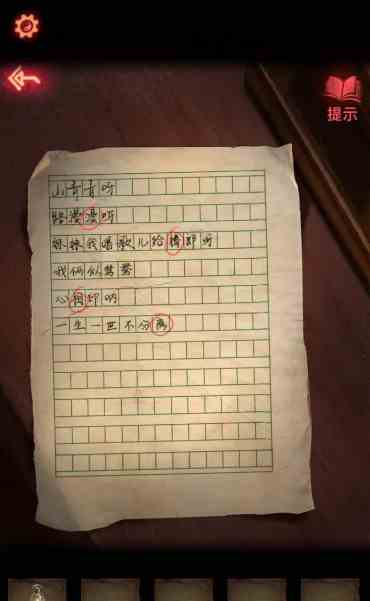 提示
山青青呀
路漫漫呀
妹妹我唱歌儿给情郎
我俩似鸳鸯
心相印呐
一生一世不分离